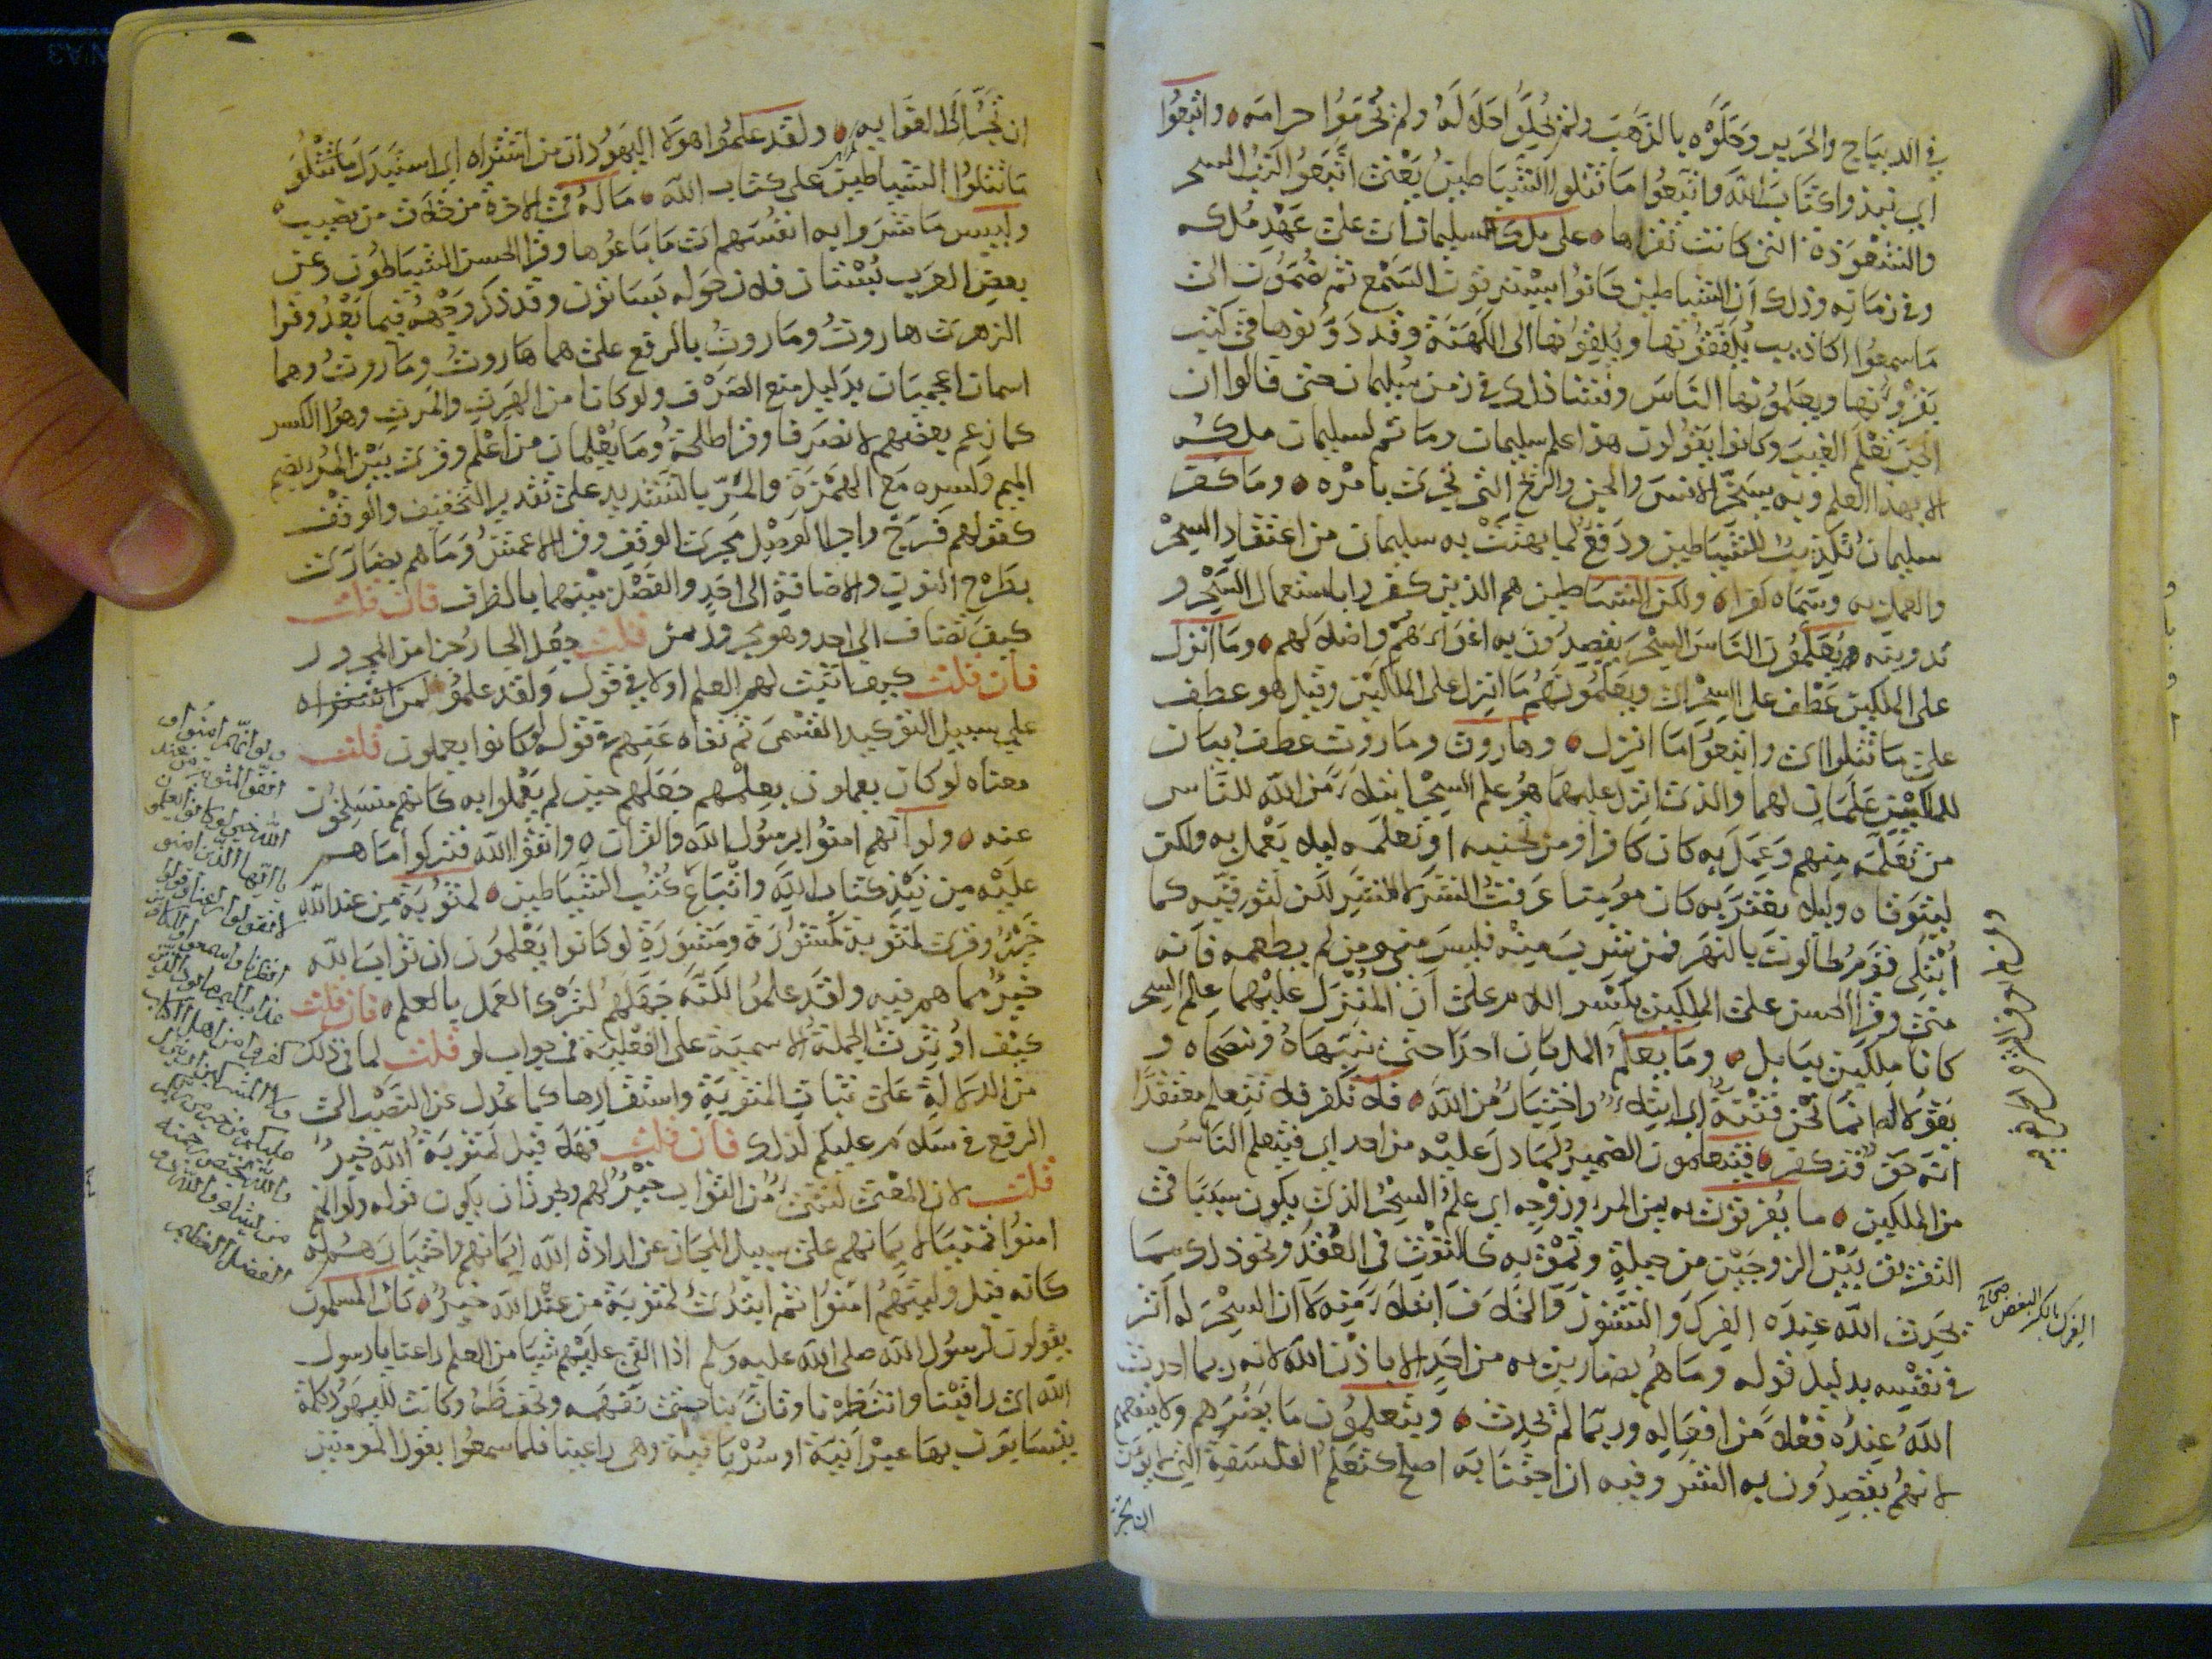 في الديباج والحرير وحلّوه بالذهب ولم يحلّوا حلاله ولم يحرّموا حرامه واتبعوا
أي نبذوا كتاب الله واتبعوا ما تتلوا الشياطين يعني اتبعوا كتب السحر
والشعوذة التي كانت تقرأها على ملك سليمان أي على عهد ملكه
وفي زمانه وذلك أن الشياطين كانوا يسترقون السمع ثم يضمون الى
ما سمعوا أكاذيب يلفقونها ويلقونها الى الكهنة وقد دونوها في كتب
يقرؤنها ويعلمونها الناس وفشا ذلك في زمن سليمان حتى قالوا ان
الجن تعلم الغيب وكانوا يقولون هذا علم سليمان وما تم لسليمان ملكه
الا بهذا العلم وبه يسخر الانس والجن والريح التي تجري بأمره وما كفر
سليمان تكذيب للشياطين ودفع لما بهتت به سليمان من اعتقاد السحر
والعمل به وسماه كفرا ولكن الشياطين هم الذين كفروا باستعمال السحر و
تدوينه ويعلمون الناس السحر يقصدون به اغواءهم واضلالهم وما انزل
على الملكين عطف على السحر أي ويعلمونهم ما انزل على الملكين وقيل هو عطف
على ما تتلوا أي واتبعوا ما انزل وهاروت وماروت عطف بيان
للملكين علمان لهما والذي انزل عليهما هو علم السحر ابتلاء من الله للناس
من تعلمه منهم وعمل به كان كافرا ومن تجنبه او تعلمه لا يعمل به ولكن
ليتوقاه وليلا يغتر به كان مومنا عرفت الشر لا للشر لكن لتوقيه كما
ابتلى قوم طالوت بالنهر فمن شرب منه فليس مني ومن لم يطعمه فانه
مني وقرا الحسن على الملكين بكسر اللام على أن المنزل عليهما علم السحر
كانا ملكين ببابل وما يعلم الملكان احدا حتى ينبهاه وينصحاه و
يقولا له انما نحن فتنة اي ابتلاء واختبار من الله فلا تكفر فلا تتعلم معتقدا
انه حق فتكفر فيتعلمون الضمير لما دل عليه من احد اي فيتعلم الناس
من الملكين ما يفرقون به بين المرء وزوجه اي علم السحر الذي يكون سببا في
التفريق بين الزوجين من حيلة وتمويه كالنفث في العقد ونحو ذلك مما
يحدث الله عنده الفرك والنشوز والخلاف ابتلاء منه لا ان السحر له اثر
في نفسه بدليل قوله وما هم بضارين به من احد الا باذن الله لانه ربما احدث
الله عنده فعلا من افعاله وربما لم يحدث ويتعلمون ما يضرهم ولا ينفعهم
لانهم يقصدون به الشر وفيه ان اجتنابه اصلح كتعلم الفلسفة التي لا يومن
ان تجر
الفرك بالكسر البغض صحاح
ان تجر الى الغواية ولقد علموا هولاء اليهود أن من اشتراه اي استبدل ما تتلو
ما تتلوا الشياطين على كتاب الله ما له في الاخرة من خلاق من نصيب
ولبيس ما شروا به انفسهم اي ما باعوها وقرا الحسن الشياطون وعن
بعض العرب بستان فلان حوله بساتون وقد ذكر وجهه فيما بعد وقرا
الزهري هاروت وماروت بالرفع على هما هاروت وماروت وهما
اسمان اعجميان بدليل منع الصرف ولو كانا من الهرت والمرت وهو الكسر
كما زعم بعضهم لانصرفا وقرا طلحة وما يعلمان من أعلم وقرئ بين المرء بضم
الميم وكسره مع الهمزة والمرّ بالتشديد على تقدير التخفيف والوقف
كقولهم فرجّ واجرا الوصل مجرى الوقف وقرا الاعمش وما هم بضاري
بطرح النون والاضافة الى احد والفصل بينهما بالظرف فان قلت
كيف تضاف الى احد وهو مجرور بمن قلت جعل الجار جزءا من المجرور
فان قلت كيف اثبت لهم العلم اولا في قوله ولقد علموا لمن اشتراه
على سبيل التوكيد القسمي ثم نفاه عنهم في قوله لو كانوا يعلمون قلت
معناه لو كان يعملون بعلمهم جعلهم حين لم يعملوا به كانهم منسلخون
عنه ولو أنهم امنوا برسول الله والقرآن واتقوا الله فتركوا ما هم
عليه من نبذ كتاب الله واتباع كتب الشياطين لمثوبة من عند الله
خير وقرئ لمثوبة كمشورة ومشورة لو كانوا يعلمون ان ثواب الله
خير مما هم فيه ولقد علموا لكنه جهلهم لترك العمل بالعلم فان قلت
كيف اوثرت الجملة الاسمية على الفعلية في جواب لو قلت لما في ذلك
من الدلالة على ثبات المثوبة واستقرارها كما عدل عن النصب الى
الرفع في سلام عليكم لذلك فان قلت فهلا قيل لمثوبة الله خير
قلت لان المعنى لشيء من الثواب خير لهم ويجوز ان يكون قوله ولو انهم
امنوا تمنيا لايمانهم على سبيل المجاز عن ارادة الله ايمانهم واختيارهم له
كانه قيل وليتهم امنوا ثم ابتدئ لمثوبة من عند الله خير كان المسلمون
يقولون لرسول الله صلى الله عليه وسلم اذا القى عليهم شيا من العلم راعنا يا رسول
الله اي راقبنا وانتظرنا وتأنّ بنا حتى نفهمه ونحفظه وكانت لليهود كلمة
يتسابون بها عبرانية او سريانية وهي راعينا فلما سمعوا بقول المومنين
ولو أنهم امنوا و
اتقوا لمثوبة من عند
الله خير لو كانوا يعلمون
يا ايها الذين امنوا
لا تقولوا راعنا وقولوا
انظرنا واسمعوا وللكافرين
عذاب اليم ما يود الذين
كفروا من اهل الكتاب
ولا المشركين ان ينزل
عليكم من خير من ربكم
والله يختص برحمته
من يشاء والله ذو
الفضل العظيم